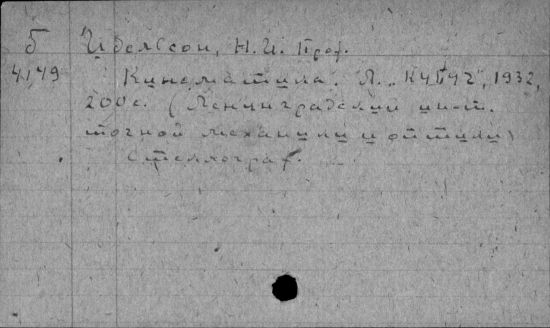 Б Идельсон, Н.И. Проф.
4,49 Кинематика. Л. "КУБУЧ", 1932,
200 с. (Ленинградский ин-т.
точной механики и оптики)
Стеклограф.